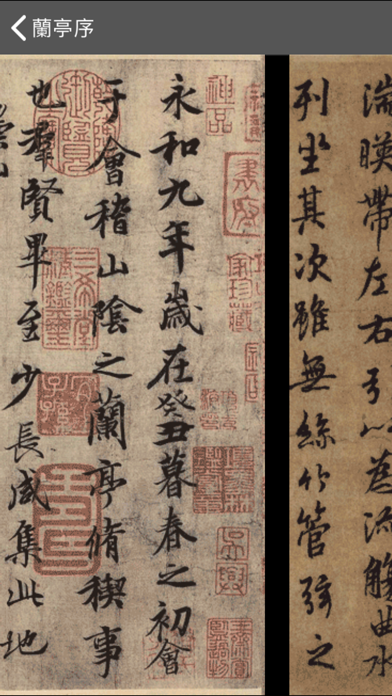 蘭亭序
永和九年歲在癸丑暮春之初會
于會稽山陰之蘭亭脩稧事
也羣賢畢至少長咸集此地
湍暎帶左右引以為流觴曲水
列坐其次雖無絲竹管弦之
神品
家珍藏
三希堂精鑑璽
宜子孫